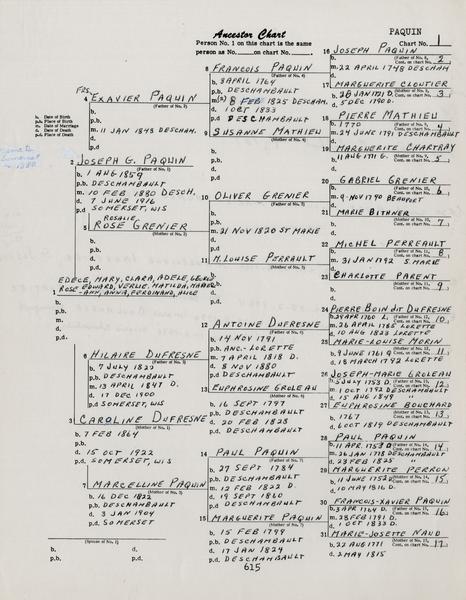 Ancestor Chart
PAQUIN
Person No. 1 on this chart is the same
person as No. on chart No. .
Chart No. 1
b. Date of Birth
p.b. Place of Birth
m. Date of Marriage
d. Date of Death
p.d. Place of Death
1
EDECE, MARY, CLARA, ADELE,
ROSE-EDWARD, VERLIE, MATILDA,
-ANN, ANNA, FERDINAND, ALICE
b.
p.b.
m.
d.
p.d.
2 JOSEPH G. PAQUIN
(Father of No. 1)
b. 1 AUG 1859
p.b. DESCHAMBAULT
m. 10 FEB 1880 DESCH.
d. 7 JUNE 1916
p.d. SOMERSET, WIS
3 CAROLINE DUFRESNE
(Mother of No. 1)
b. 7 FEB 1864
p.b.
d. 15 OCT 1922
p.d. SOMERSET, WIS
(Spouse of No. 1)
b. d.
p.b. p.d.
4 EXAVIER PAQUIN
(Father of No. 2)
b.
p.b.
m. 11 JAN 1843 DESCHAM.
d.
p.d.
ROSALIE
5 ROSE GRENIER
(Mother of No. 2)
b.
p.b.
d.
p.d.
6 HILAIRE DUFRESNE
(Father of No. 3)
b. 7 JULY 1822
p.b. DESCHAMBAULT
m. 13 APRIL 1847 D.
d. 17 DEC 1900
p.d. SOMERSET, WIS
7 MARCELLINE PAQUIN
(Mother of No. 3)
b. 16 DEC 1822
p.b. DESCHAMBAULT
d. 3 JAN 1904
p.d. SOMERSET
8 FRANCOIS PAQUIN
(Father of No. 4)
b. 3 APRIL 1764
p.b. DESCHAMBAULT
m. 8 FEB 1825 DESCHAM.
d. 1 OCT 1833
p.d. DESCHAMBAULT
9 SUSANNE MATHIEU
(Mother of No. 4)
b.
p.b.
d.
p.d.
10 OLIVER GRENIER
(Father of No. 5)
b.
p.b.
m. 21 NOV 1820 ST MARIE
d.
p.d.
11 M. LOUISE PERRAULT
(Mother of No. 5)
b.
p.b.
d.
p.d.
12 ANTOINE DUFRESNE
(Father of No. 6)
b. 14 NOV 1791
p.b. ANC.-LORETTE
m. 7 APRIL 1818 D.
d. 8 NOV 1880
p.d. DESCHAMBAULT
13 EUPHROSINE GROLEAU
(Mother of No. 6)
b. 16 SEPT 1797
p.b. DESCHAMBAULT
d. 20 FEB 1828
p.d. DESCHAMBAULT
14 PAUL PAQUIN
(Father of No. 7)
b. 27 SEPT 1784
p.b. DESCHAMBAULT
m. 12 FEB 1822 D.
d. 19 SEPT 1860
p.d. DESCHAMBAULT
15 MARGUERITE PAQUIN
(Mother of No. 7)
b. 15 FEB 1799
p.b. DESCHAMBAULT
d. 17 JAN 1824
p.d. DESCHAMBAULT
16 JOSEPH PAQUIN
(Father of No. 8, Cont. on chart No. 2)
b.
m. 22 APRIL 1748 DESCHAM
d.
17 MARGUERITE CLOUTIER
(Mother of No. 8, Cont. on chart No. 3)
b. 28 JAN 1721 D.
d. 5 DEC 1790 D.
18 PIERRE MATHIEU
(Father of No. 9, Cont. on chart No. 4)
b. 1770
m. 24 JUNE 1791 DESCHAMB.
d.
19 MARGUERITE CHARTRAY
(Mother of No. 9, Cont. on chart No. 5)
b. 11 AUG 1771 G.
d.
20 GABRIEL GRENIER
(Father of No. 10, Cont. on chart No. 6)
b.
m. 9 NOV 1790 BEAUPORT
d.
21 MARIE BITHNER
(Mother of No. 10, Cont. on chart No. 7)
b.
d.
22 MICHEL PERREAULT
(Father of No. 11, Cont. on chart No. 8)
b.
m. 31 JAN 1792 S MARIE
d.
23 CHARLOTTE PARENT
(Mother of No. 11, Cont. on chart No. 9)
b.
d.
24 PIERRE BOIN DIT DUFRESNE
(Father of No. 12, Cont. on chart No. 10)
b. 31 APR 1760 L.
m. 26 APRIL 1785 LORETTE
d. 10 AUG 1823 LORETTE
25 MARIE-LOUISE MORIN
(Mother of No. 12, Cont. on chart No. 11)
b. 9 JUNE 1761
d. 18 MARCH 1792 LORETTE
26 JOSEPH-MARIE GROLEAU
(Father of No. 13, Cont. on chart No. 12)
b. 5 JULY 1753 D.
m. 1 OCT 1792 DESCHAMBAULT
d. 15 AUG 1849 "
27 EUPHROSINE BOUCHARD
(Mother of No. 13, Cont. on chart No. 13)
b. 1767
d. 6 OCT 1819 DESCHAMBAULT
28 PAUL PAQUIN
(Father of No. 14, Cont. on chart No. 14)
b. 11 APR 1753 D.
m. 26 JAN 1778 DESCHAMBAULT
d. 23 FEB 1825
29 MARGUERITE PERRON
(Mother of No. 14, Cont. on chart No. 15)
b. 11 JUNE 1752 D.
d. 10 MAY 1816 D.
30 FRANCOIS-XAVIER PAQUIN
(Father of No. 15, Cont. on chart No. 16)
b. 3 APR 1764 D.
m. 28 FEB 1791 D.
d. 1 OCT 1833 D.
31 MARIE-JOSETTE NAUD
(Mother of No. 15, Cont. on chart No. 17)
b. 22 AUG 1771
d. 2 MAY 1815
615